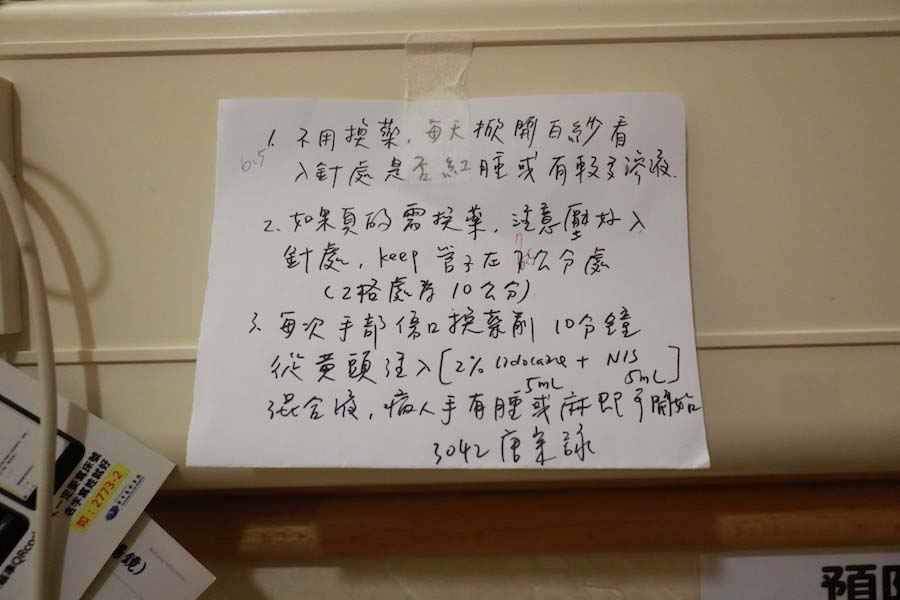 1. 不用換藥，每天掀開白紗看
6.5
入針處是否紅腫或有較多溶液.
2. 如果真的需換藥，注意壓好入
針處，keep 管子在 公分處
(2格處為10公分)
3. 每次手部傷口換藥前10分鐘
從黃頭注入[2% lidocaine + N/S]
5mL 5mL
混合液，病人手有腫或麻即可開始
3042 唐宗詠
名字獲姓就好
如:2773-2
鏡)
預防